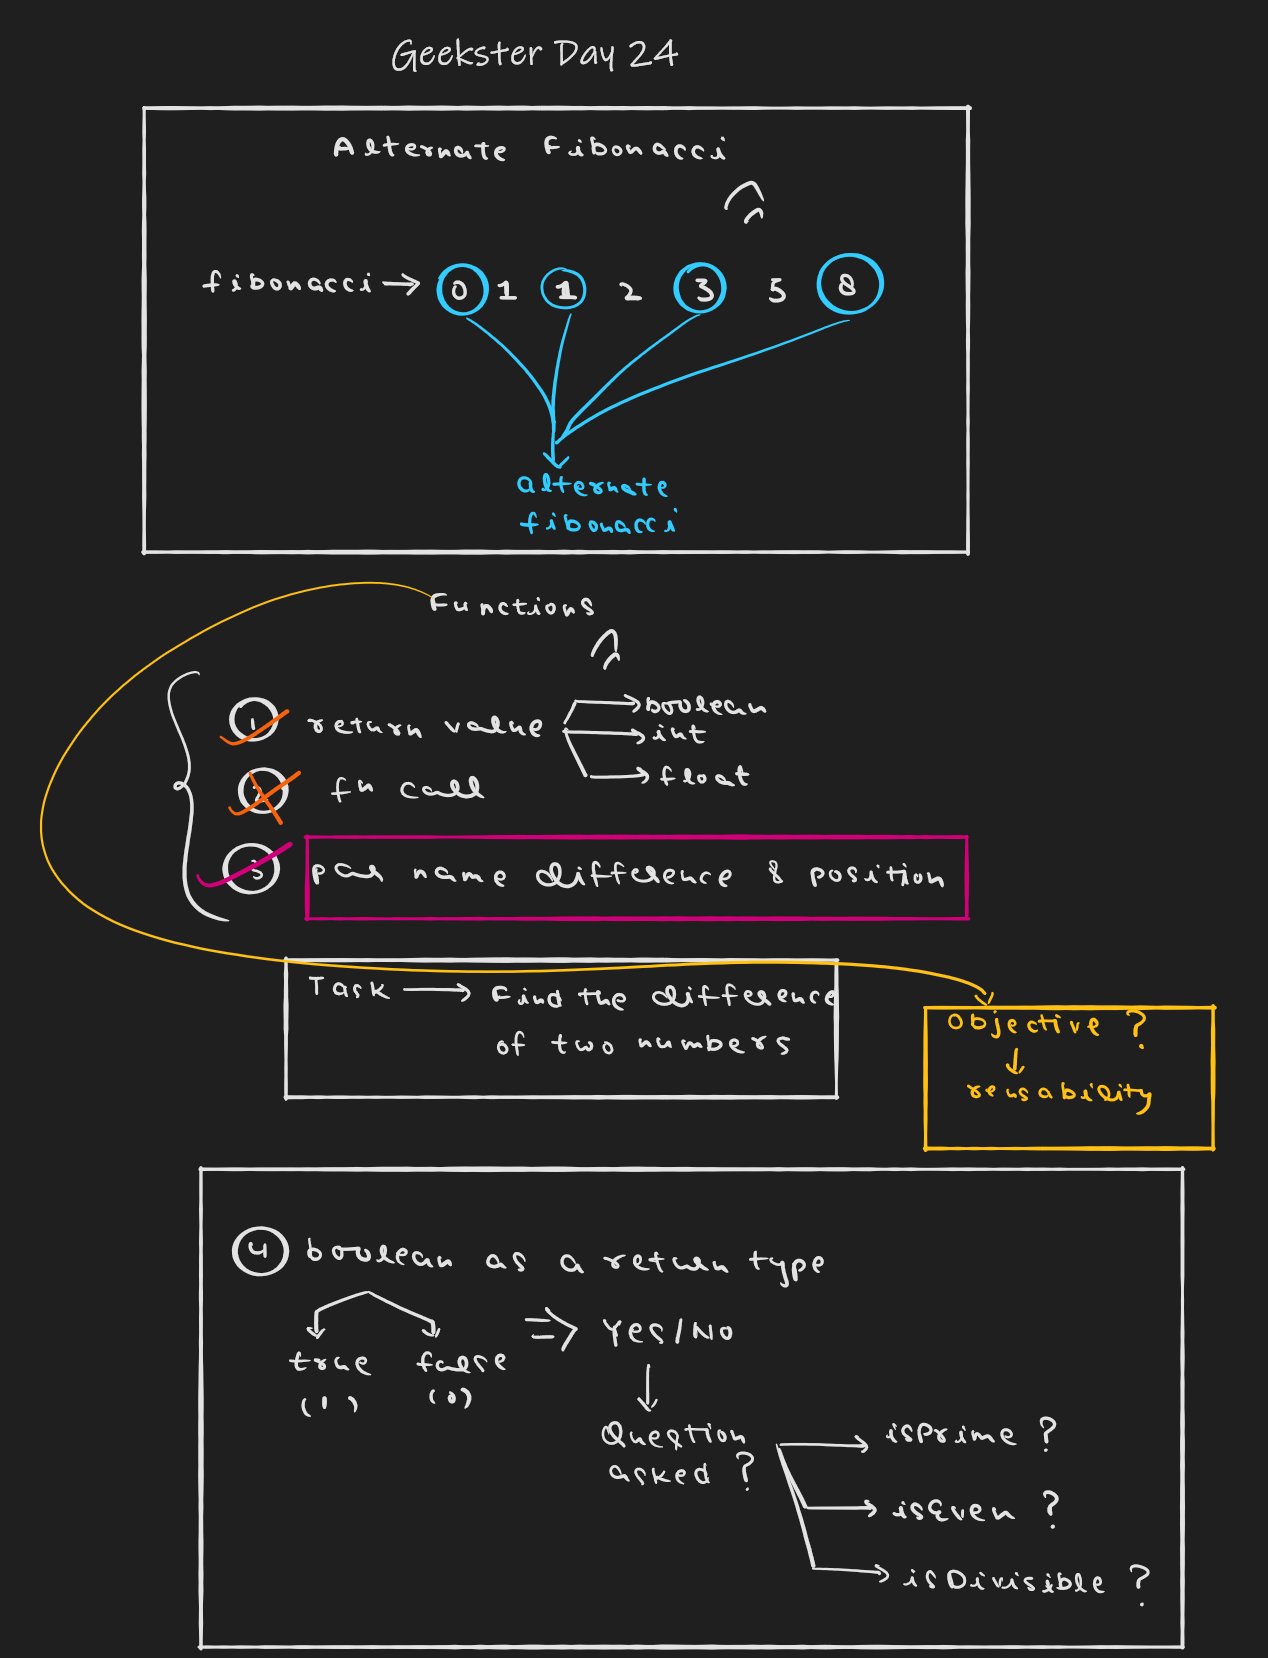 Geekster Day 24
Alternate Fibonacci
fibonacci → 0 1 1 2 3 5 8
alternate
fibonacci
Functions
1 return value → boolean
→ int
→ float
2 fn call
3 par name difference & position
Task → Find the difference
of two numbers
Objective ?
↓
reusability
4 boolean as a return type
true false ⇒ Yes/No
(1) (0)
Question
asked ?
→ isPrime ?
→ isEven ?
→ isDivisible ?